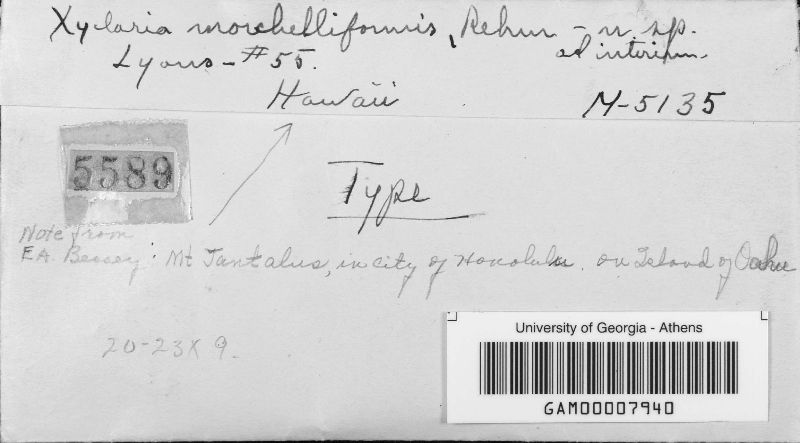 Xylaria morchelliformis, Rehm - n. sp.
ad interim.
Lyons - #55.
Hawaii
M-5135
5589
Type
Note from
E.A. Bessey: Mt Tantalus, in city of Honolulu. on Island of Oahu
20-23 X 9.
University of Georgia - Athens
GAM00007940